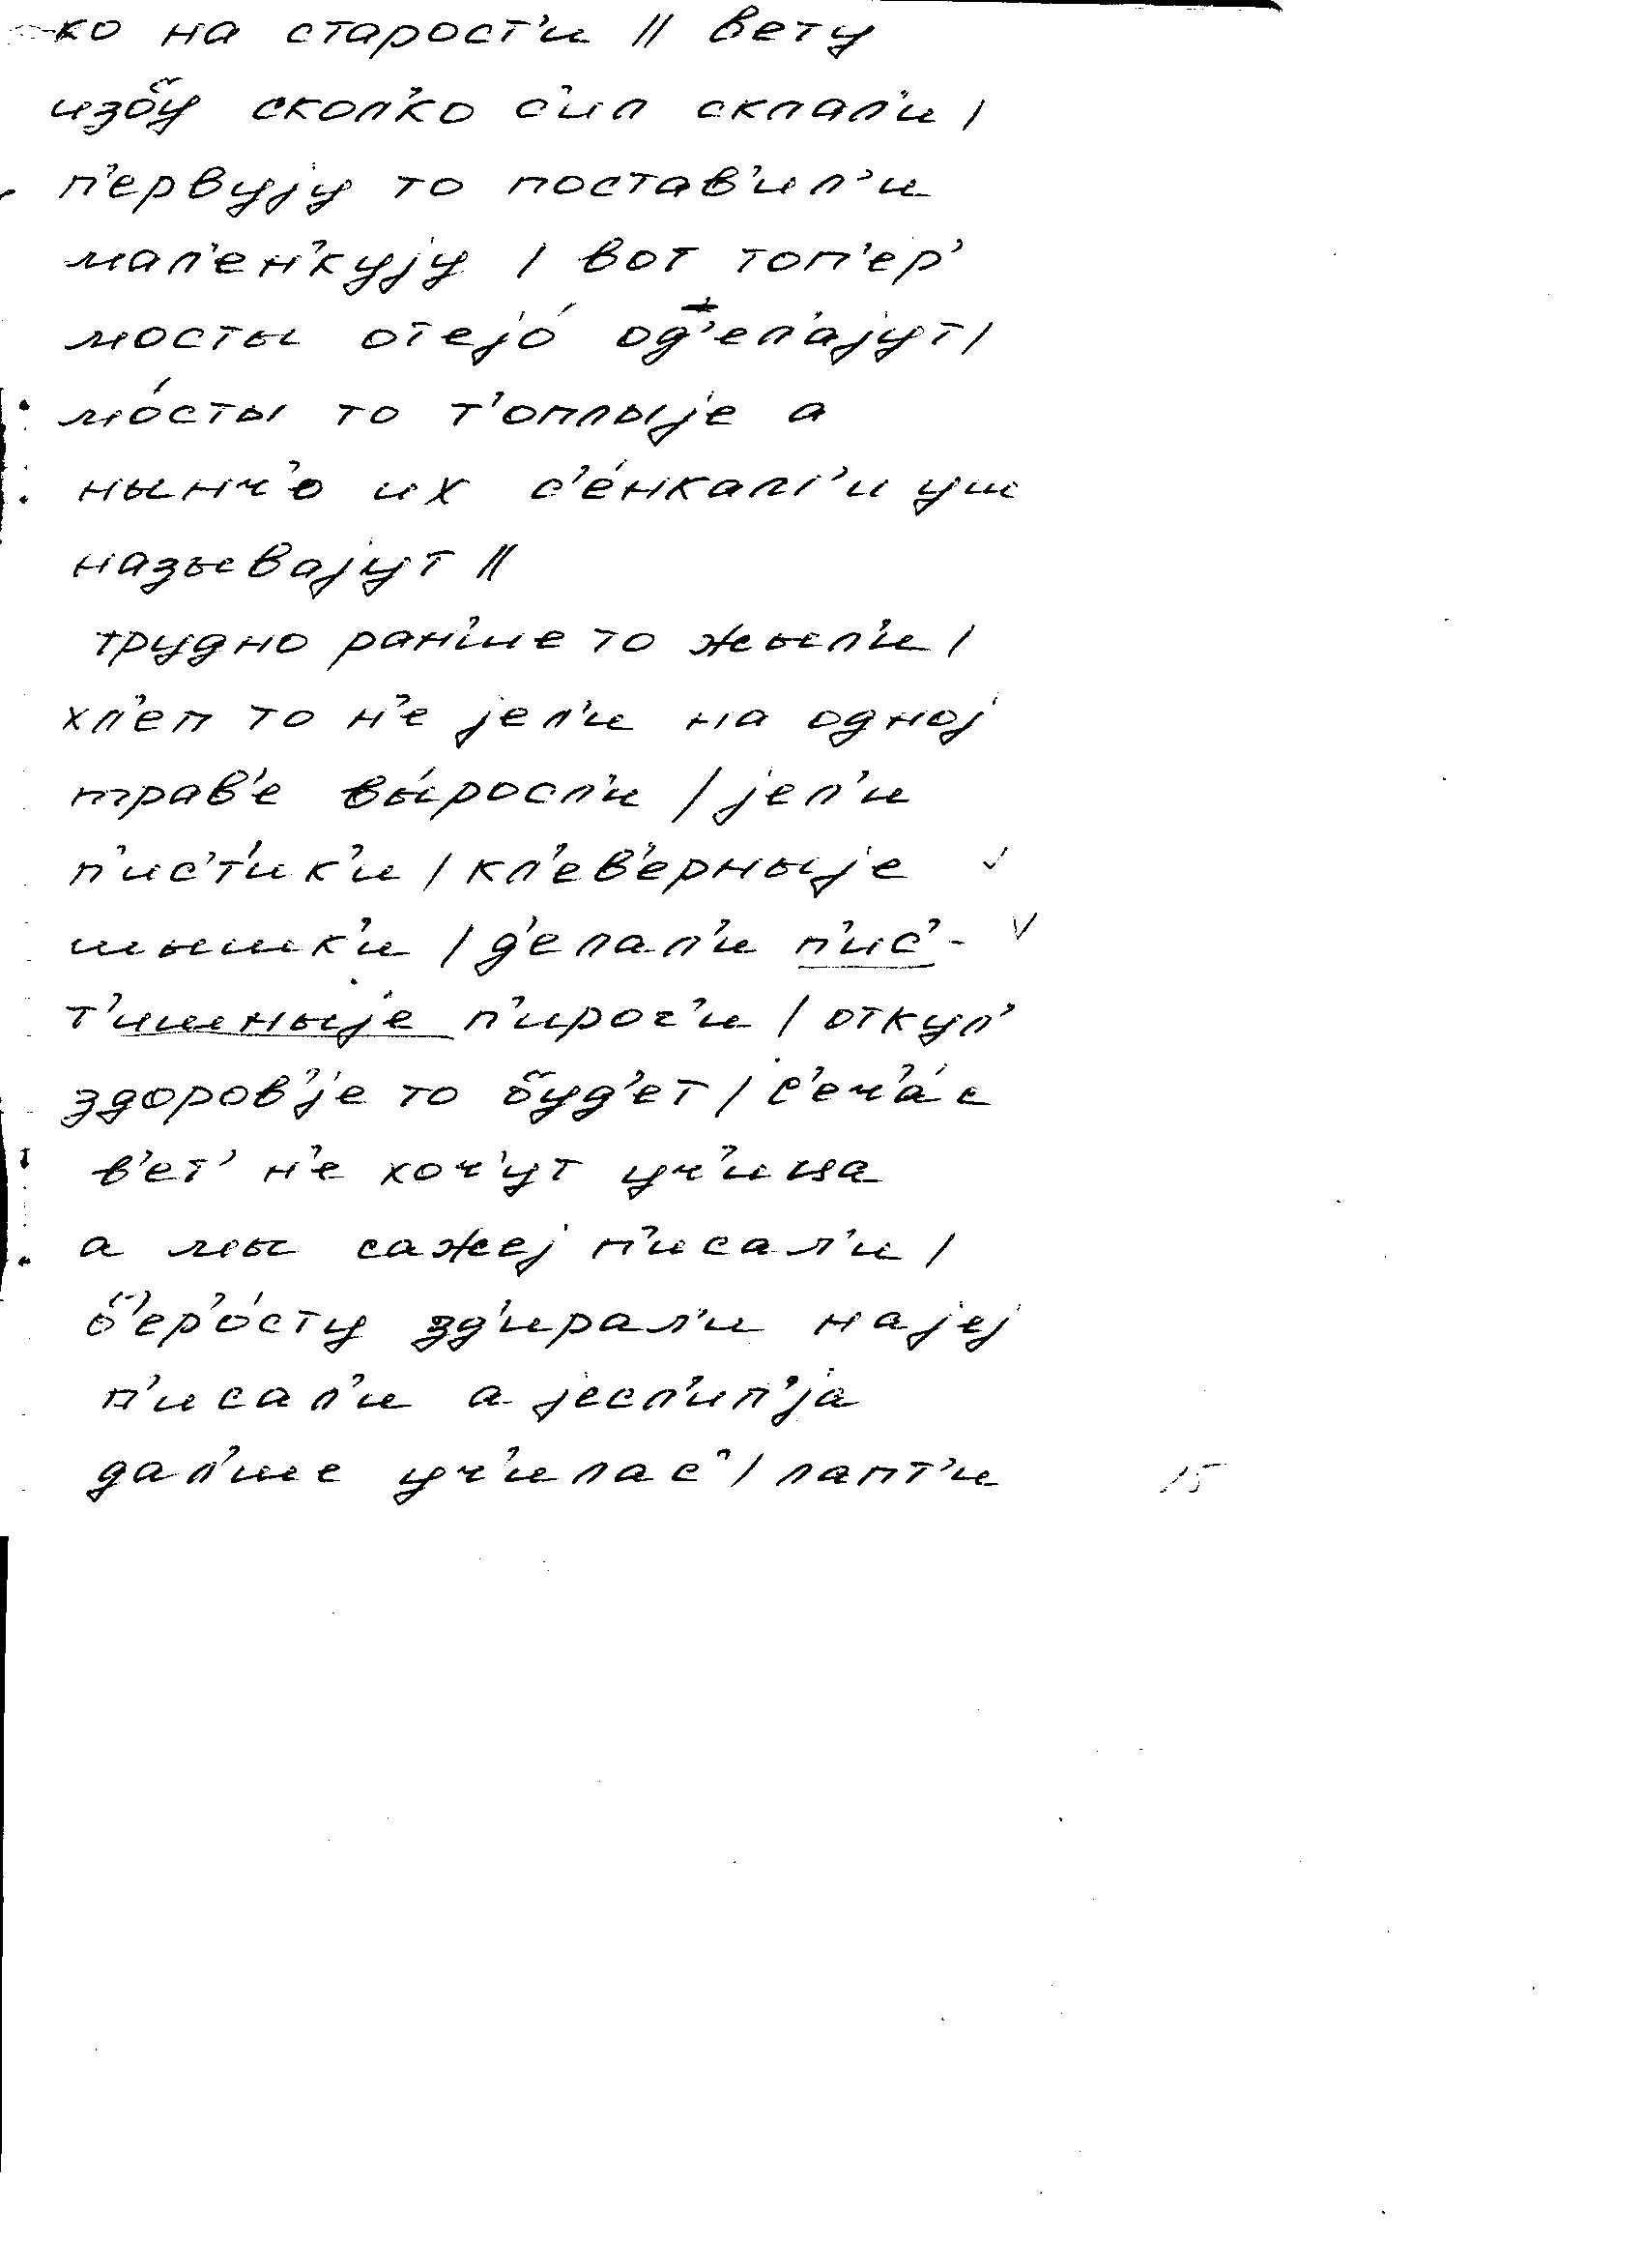 ко на старост'и || вету
избу скол'ко с'ил склал'и |
п'ервују то постав'ил'и
мал'ен'кују | вот топ'ер'
мосты отејо́ од'елајут |
мо́сты то т'оплыје а
нынч'о их с'е́нкал'и уш
называјут ||
трудно ран'ше то жыл'и |
хл'еп то н'е јел'и на одној
трав'е вы́росл'и | јел'и
п'ис'т'ик'и | кл'ев'ерныје
шышк'и | д'елал'и п'ис'-
т'ишныје п'ирог'и | откул'
здоров'је то буд'ет | с'еч'а́с
в'ет' н'е хоч'ут уч'ица
а мы сажеј п'исал'и |
б'ер'о́сту зд'ирал'и на јеј
п'исал'и а јесл'ип'ја
дал'ше уч'илас' | лапт'и
15